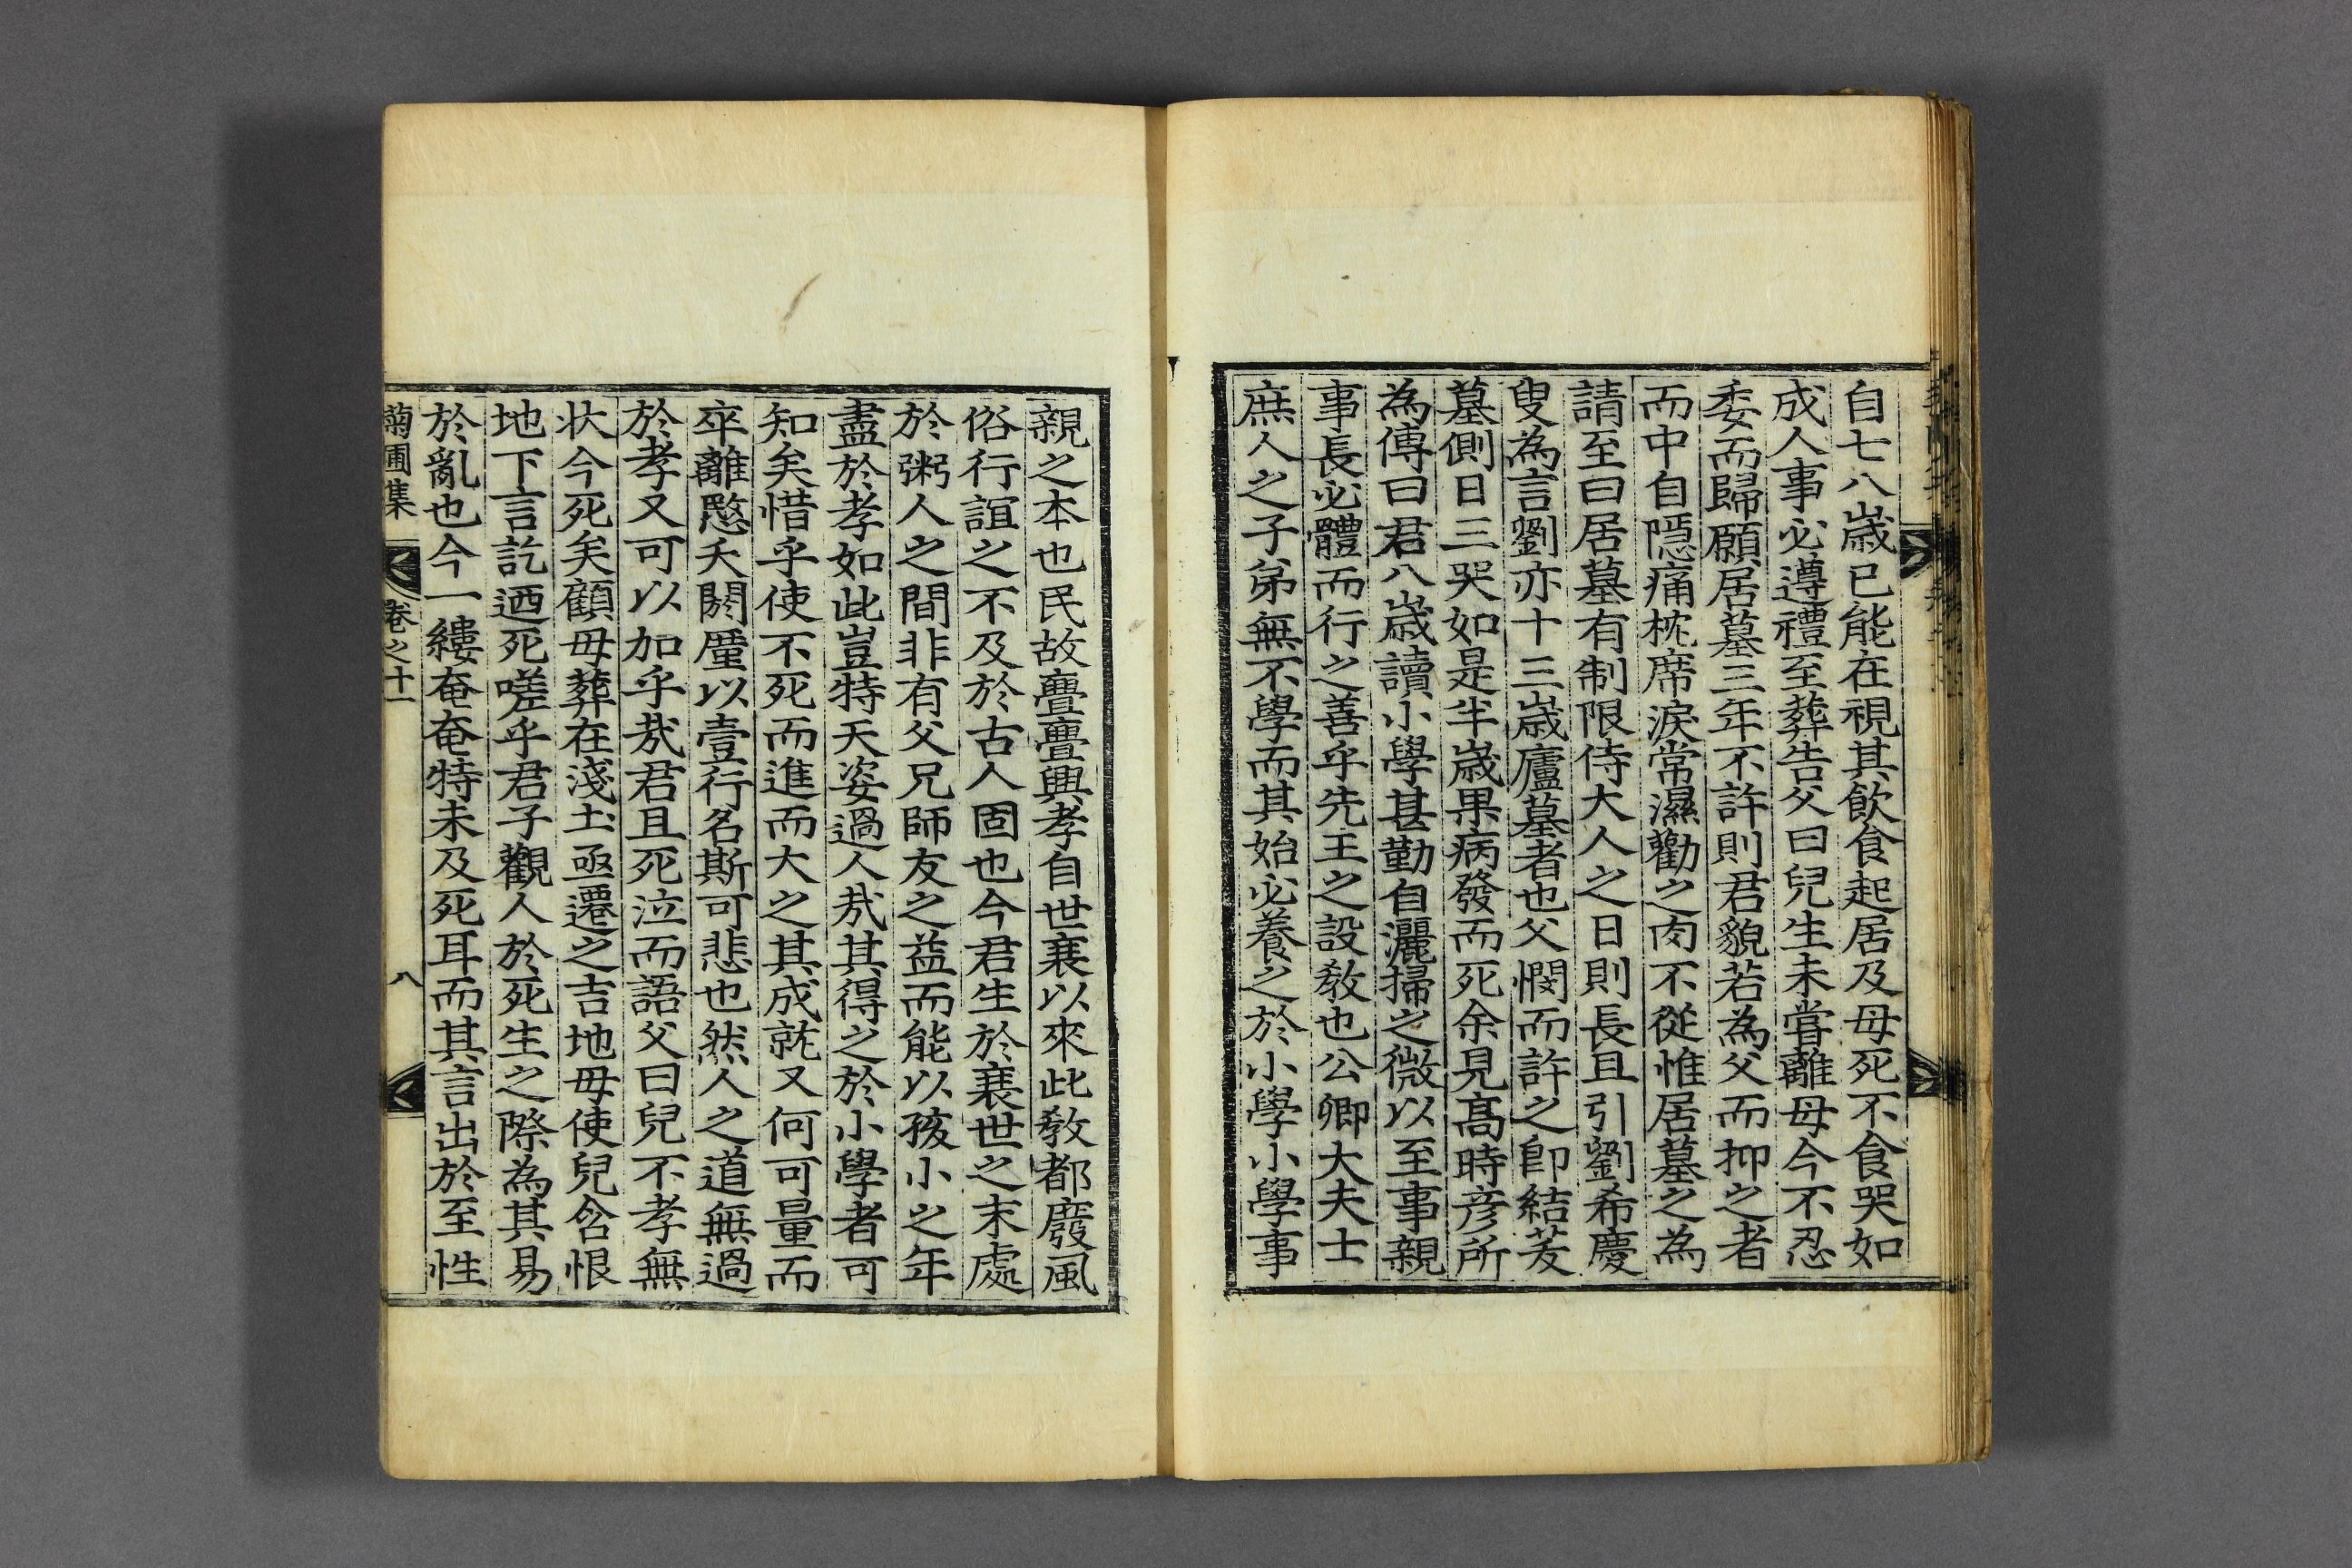 自七八歲已能在視其飮食起居及母死不食哭如
成人事必遵禮至葬告父曰兒生未嘗離母今不忍
委而歸願居墓三年不許則君貌若為父而抑之者
而中自隱痛枕席淚常濕勸之肉不從惟居墓之為
請至曰居墓有制限侍大人之日則長且引劉希慶
叟為言劉亦十三歲廬墓者也父憫而許之卽結茇
墓側日三哭如是半歲果病發而死余見高時彦所
為傳曰君八歲讀小學甚勤自灑掃之微以至事親
事長必體而行之善乎先王之設敎也公卿大夫士
庶人之子弟無不學而其始必養之於小學小學事
親之本也民故亹亹興孝自世衰以來此敎都廢風
俗行誼之不及於古人固也今君生於衰世之末處
於粥人之間非有父兄師友之益而能以孩小之年
盡於孝如此豈特天姿過人㦲其得之於小學者可
知矣惜乎使不死而進而大之其成就又何可量而
卒離愍夭閼厪以壹行名斯可悲也然人之道無過
於孝又可以加乎㦲君且死泣而語父曰兒不孝無
状今死矣顧母葬在淺土亟遷之吉地母使兒含恨
地下言訖迺死嗟乎君子觀人於死生之際為其易
於亂也今一縷奄奄特未及死耳而其言出於至性
菊圃集 卷之十一 八